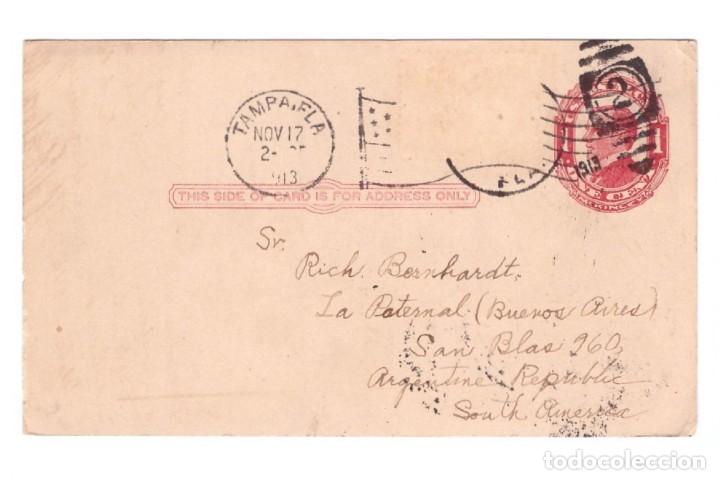 TAMPA, FLA
NOV 17
2-
1913
FLA.
1913
1 1
McKINLEY
THIS SIDE OF CARD IS FOR ADDRESS ONLY
Sr.
Rich. Bernhardt,
La Paternal (Buenos Aires)
San Blas 960,
Argentine Republic
South America
todocoleccion.net